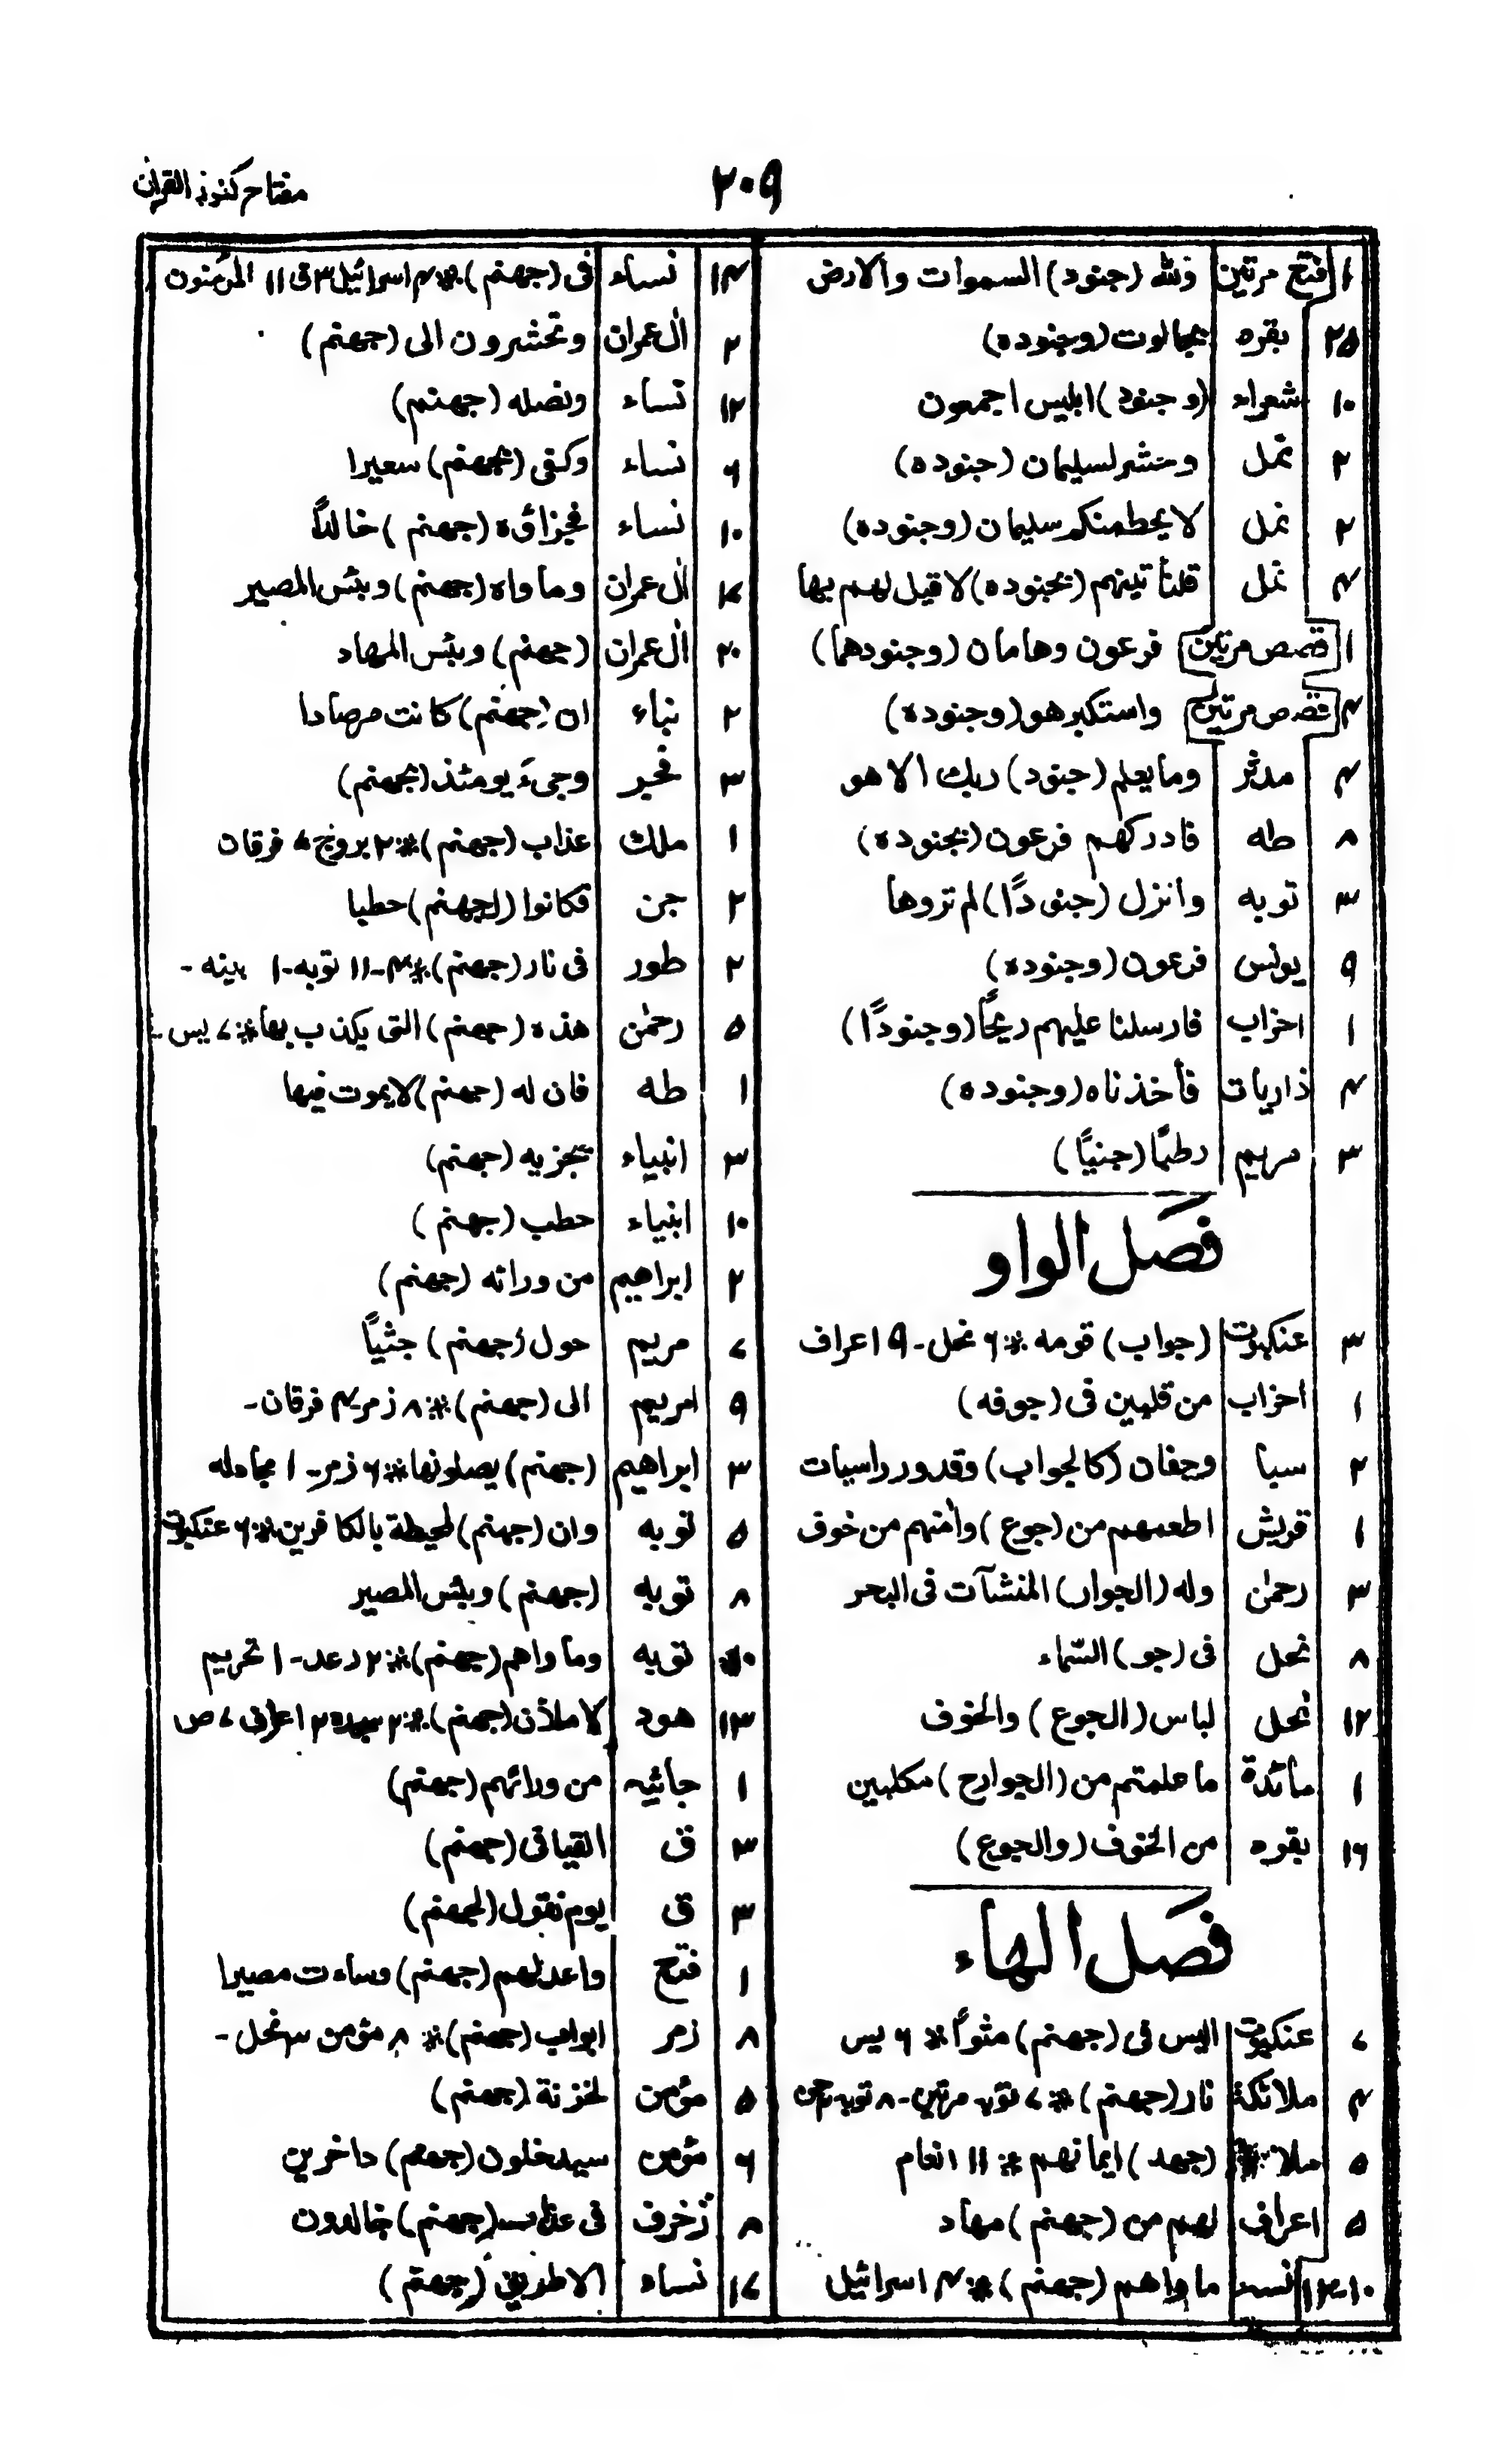 مفتاح كنوز القران
۲۰۹
۱ فتح مرتين ولله (جنود) السموات والارض
۲۵ بقره بجالوت (وجنوده)
۱۰ شعراء (وجنود) ابليس اجمعون
۲ نمل وحشر لسليمان (جنوده)
۲ نمل لا يحطمنكم سليمان (وجنوده)
۳ نمل فلنأتينهم (بجنوده) لا قبل لهم بها
۱ قصص مرتين فرعون وهامان (وجنودهما)
۴ قصص مرتين واستكبر هو (وجنوده)
۴ مدثر وما يعلم (جنود) ربك الا هو
۸ طه فادركهم فرعون (بجنوده)
۳ توبه وانزل (جنودًا) لم تروها
۹ يونس فرعون (وجنوده)
۱ احزاب فارسلنا عليهم ريحًا (وجنودًا)
۴ ذاريات فأخذناه (وجنوده)
۳ مريم رطبًا (جنيًا)
فصل الواو
۳ عنكبوت (جواب) قومه ※ ۶ نمل - ۹ اعراف
۱ احزاب من قلبين فى (جوفه)
۲ سبا وجفان (كالجواب) وقدور راسيات
۱ قريش اطعمهم من (جوع) وأمنهم من خوف
۳ رحمٰن وله (الجوار) المنشآت فى البحر
۸ نحل فى (جو) السّماء
۱۲ نحل لباس (الجوع) والخوف
۱ مائدة ما علمتم من (الجوارح) مكلبين
۱۶ بقره من الخوف (والجوع)
فصل الهاء
۷ عنكبوت اليس فى (جهنم) مثوًا ※ ۶ يس
۴ ملائكة نار (جهنم) ※ ۷ توبه مرتين - ۸ توبه جن
۵ (جهد) ايمانهم ※ ۱۱ انعام
۵ اعراف لهم من (جهنم) مهاد
۱۰-۱۲ نسا ماواهم (جهنم) ※ ۴ اسرائيل
۱۴ نساء فى (جهنم) ※ ۴ اسرائيل ۳ ق ۱۱ المؤمنون
۲ اٰل عمران وتحشرون الى (جهنم)
۱۲ نساء ونصله (جهنم)
۶ نساء وكفى (بجهنم) سعيرا
۱۰ نساء فجزاؤه (جهنم) خالدًا
۱۷ اٰل عمران وماواه (جهنم) وبئس المصير
۲۰ اٰل عمران (جهنم) وبئس المهاد
۲ نباء ان (جهنم) كانت مرصادا
۳ فجر وجىءَ يومئذ (بجهنم)
۱ ملك عذاب (جهنم) ※ ۲ بروج ۶ فرقان
۲ جن فكانوا (لجهنم) حطبا
۲ طور فى نار (جهنم) ※ ۴ - ۱۱ توبه - ۱ بينه -
۵ رحمٰن هذه (جهنم) التى يكذب بها ※ ۷ يس -
۱ طه فان له (جهنم) لا يموت فيها
۳ انبياء نجزيه (جهنم)
۱۰ ابنياء حطب (جهنم)
۲ ابراهيم من ورائه (جهنم)
۷ مريم حول (جهنم) جثيًا
۹ مريم الى (جهنم) ※ ۸ زمر ۴ فرقان -
۳ ابراهيم (جهنم) يصلونها ※ ۶ زمر - ۱ مجادله
۵ توبه وان (جهنم) لمحيطة بالكافرين ※ ۶ عنكبوت
۸ توبه (جهنم) وبئس المصير
۱۰ توبه وماواهم (جهنم) ※ ۲ رعد - ۱ تحريم
۱۳ هود لاملأن (جهنم) ※ ۲ سجده ۲ اعراف ۷ ص
۱ جاثيه من ورائهم (جهنم)
۳ ق القيا فى (جهنم)
۳ ق يوم نقول (لجهنم)
۱ فتح واعد لهم (جهنم) وساءت مصيرا
۸ زمر ابواب (جهنم) ※ ۸ مؤمن ۳ نحل -
۵ مؤمن لخزنة (جهنم)
۶ مؤمن سيدخلون (جهنم) داخرين
۸ زخرف فى عذاب (جهنم) خالدون
۱۷ نساء الا طريق (جهنم)